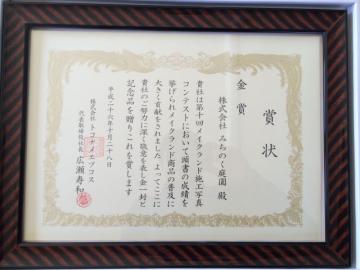 賞状
金賞
株式会社 みちのく庭園 殿
貴社は第十回メイクランド施工写真
コンテストにおいて頭書の成績を
挙げられメイクランド商品の普及に
大きく貢献をされました よってここに
貴社のご努力に深く敬意を表し金一封と
記念品を贈りこれを賞します
平成二十六年十月二十八日
株式会社 トコナメエプコス
代表取締役社長 広瀬寿和